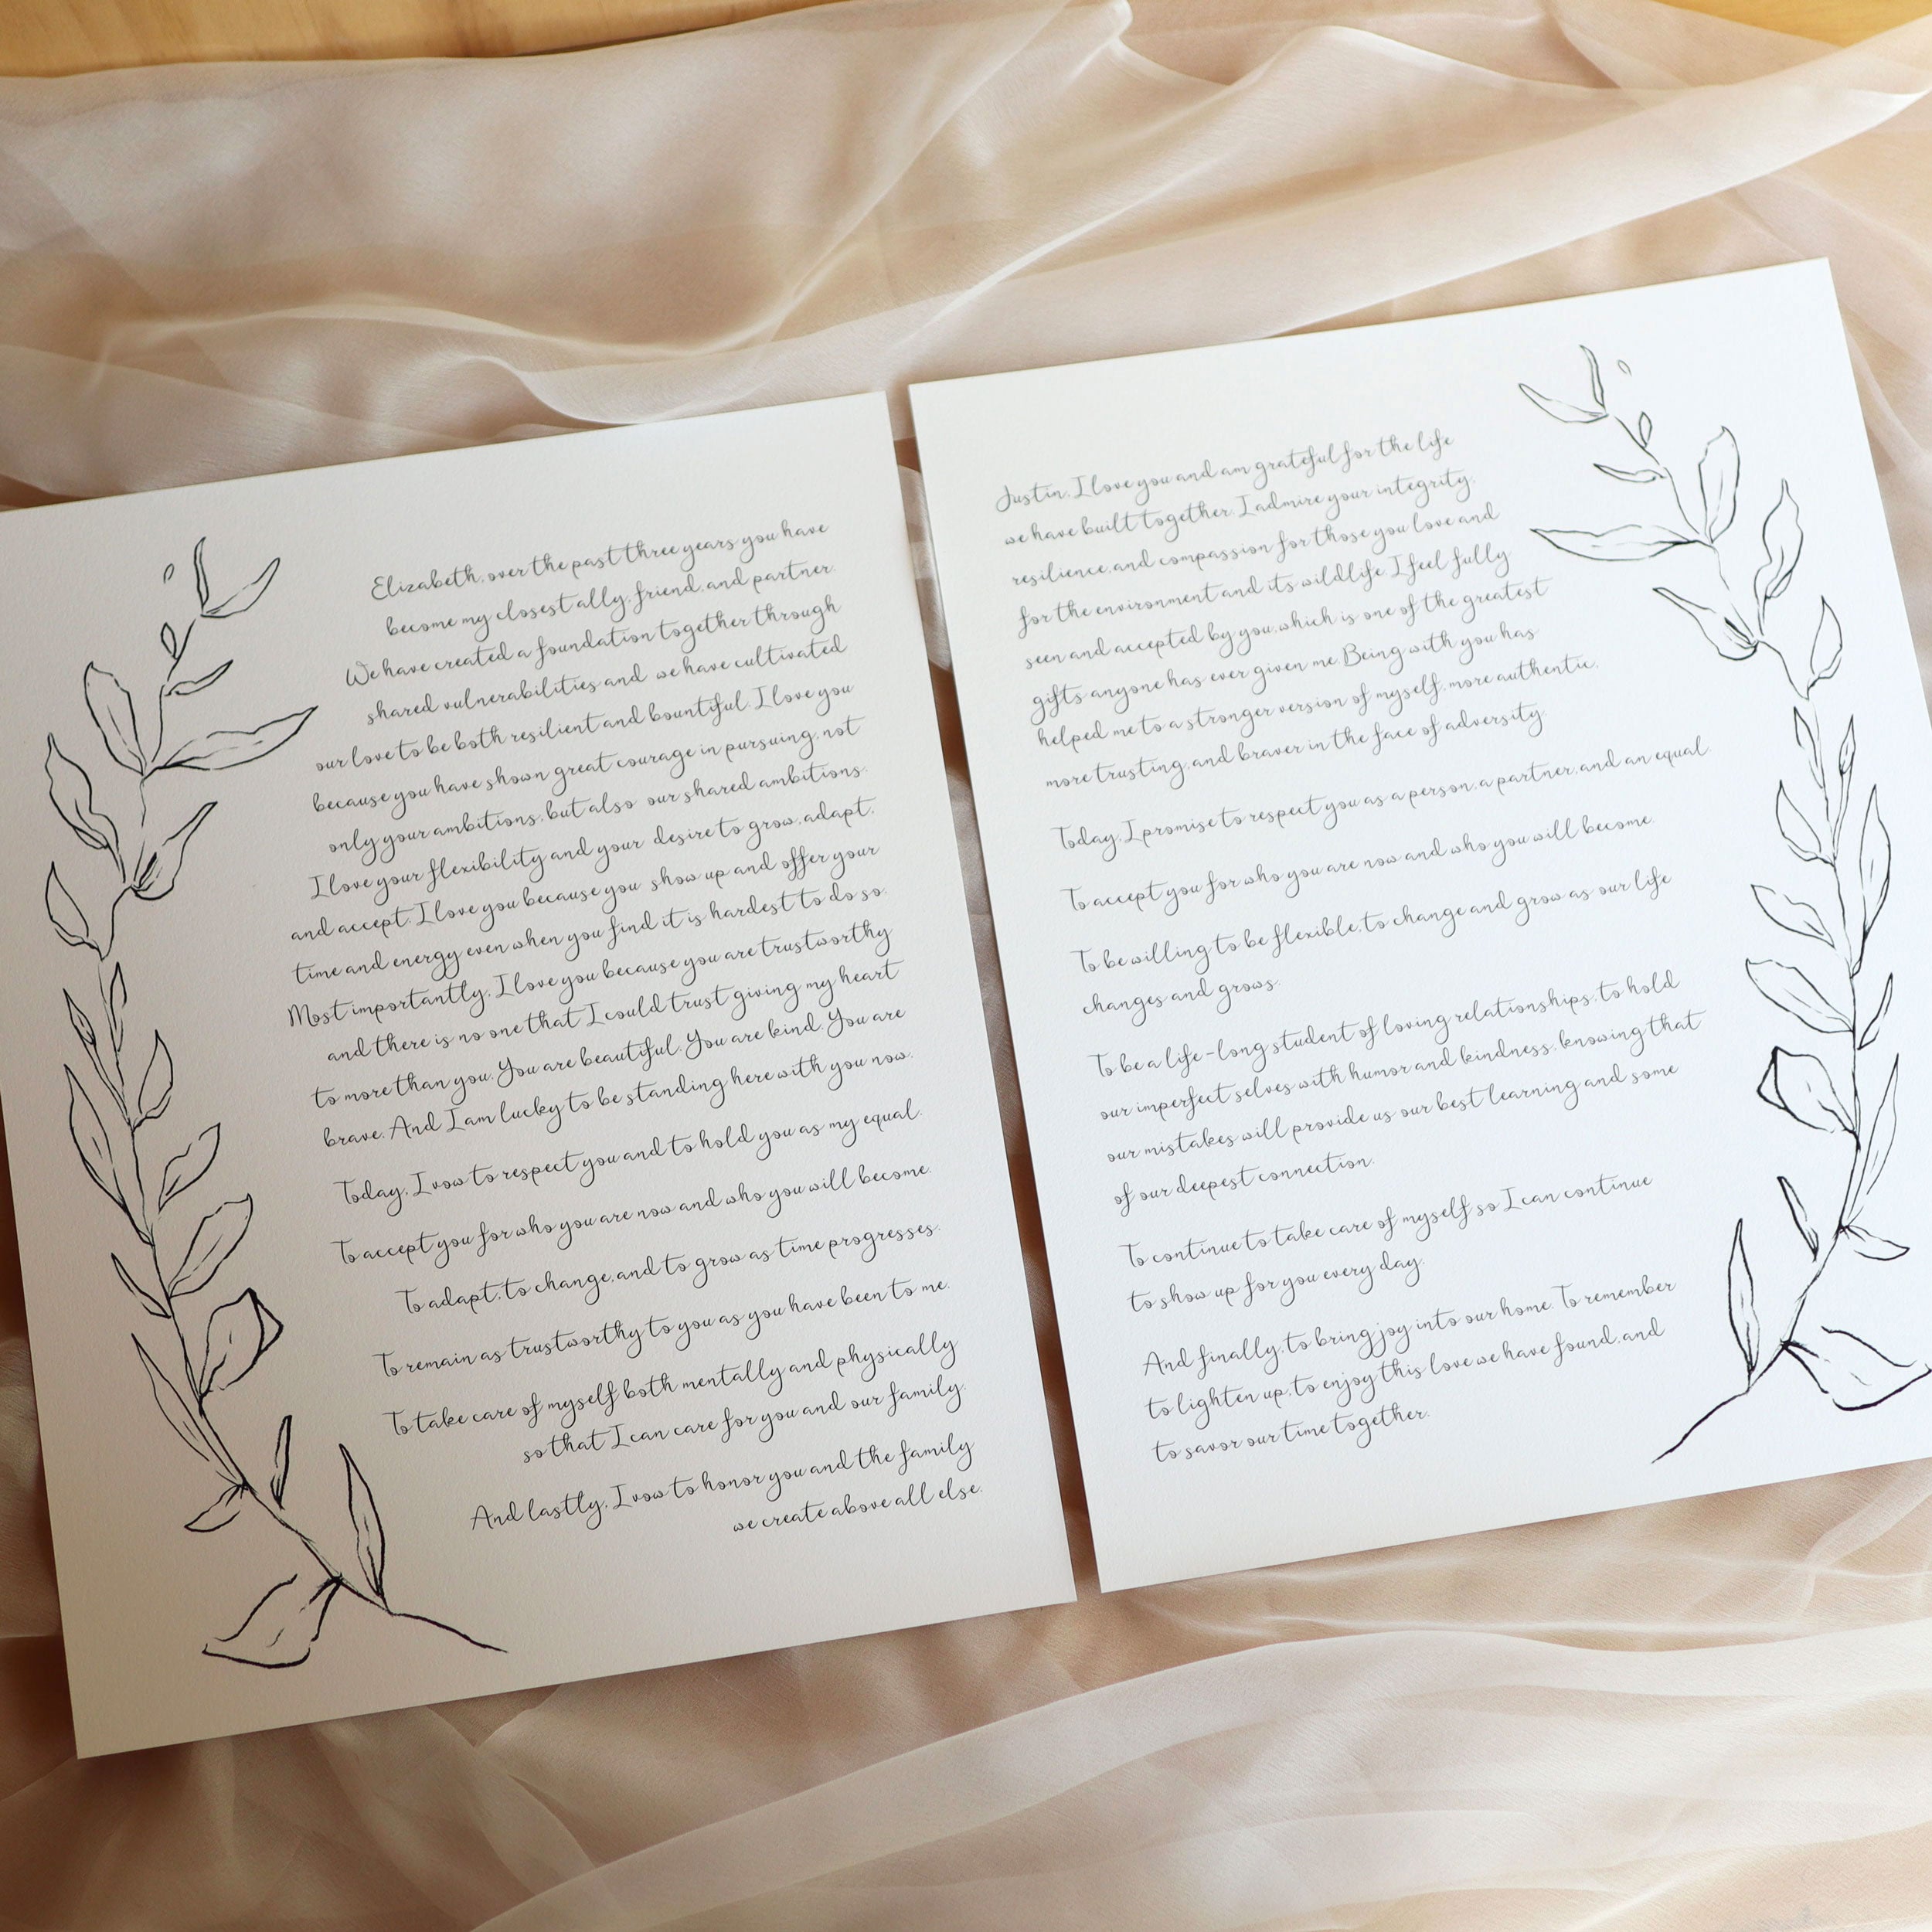 Elizabeth, over the past three years you have
become my closest ally, friend, and partner.
We have created a foundation together through
shared vulnerabilities and we have cultivated
our love to be both resilient and bountiful. I love you
because you have shown great courage in pursuing, not
only your ambitions, but also our shared ambitions.
I love your flexibility and your desire to grow, adapt,
and accept. I love you because you show up and offer your
time and energy even when you find it is hardest to do so.
Most importantly, I love you because you are trustworthy
and there is no one that I could trust giving my heart
to more than you. You are beautiful. You are kind. You are
brave. And I am lucky to be standing here with you now.
Today, I vow to respect you and to hold you as my equal.
To accept you for who you are now and who you will become.
To adapt, to change, and to grow as time progresses.
To remain as trustworthy to you as you have been to me.
To take care of myself both mentally and physically
so that I can care for you and our family.
And lastly, I vow to honor you and the family
we create above all else.
Justin, I love you and am grateful for the life
we have built together. I admire your integrity,
resilience, and compassion for those you love and
for the environment and its wildlife. I feel fully
seen and accepted by you, which is one of the greatest
gifts anyone has ever given me. Being with you has
helped me to a stronger version of myself, more authentic,
more trusting, and braver in the face of adversity.
Today, I promise to respect you as a person, a partner, and an equal.
To accept you for who you are now and who you will become.
To be willing to be flexible, to change and grow as our life
changes and grows.
To be a life-long student of loving relationships, to hold
our imperfect selves with humor and kindness, knowing that
our mistakes will provide us our best learning and some
of our deepest connection.
To continue to take care of myself so I can continue
to show up for you every day.
And finally, to bring joy into our home. To remember
to lighten up, to enjoy this love we have found, and
to savor our time together.